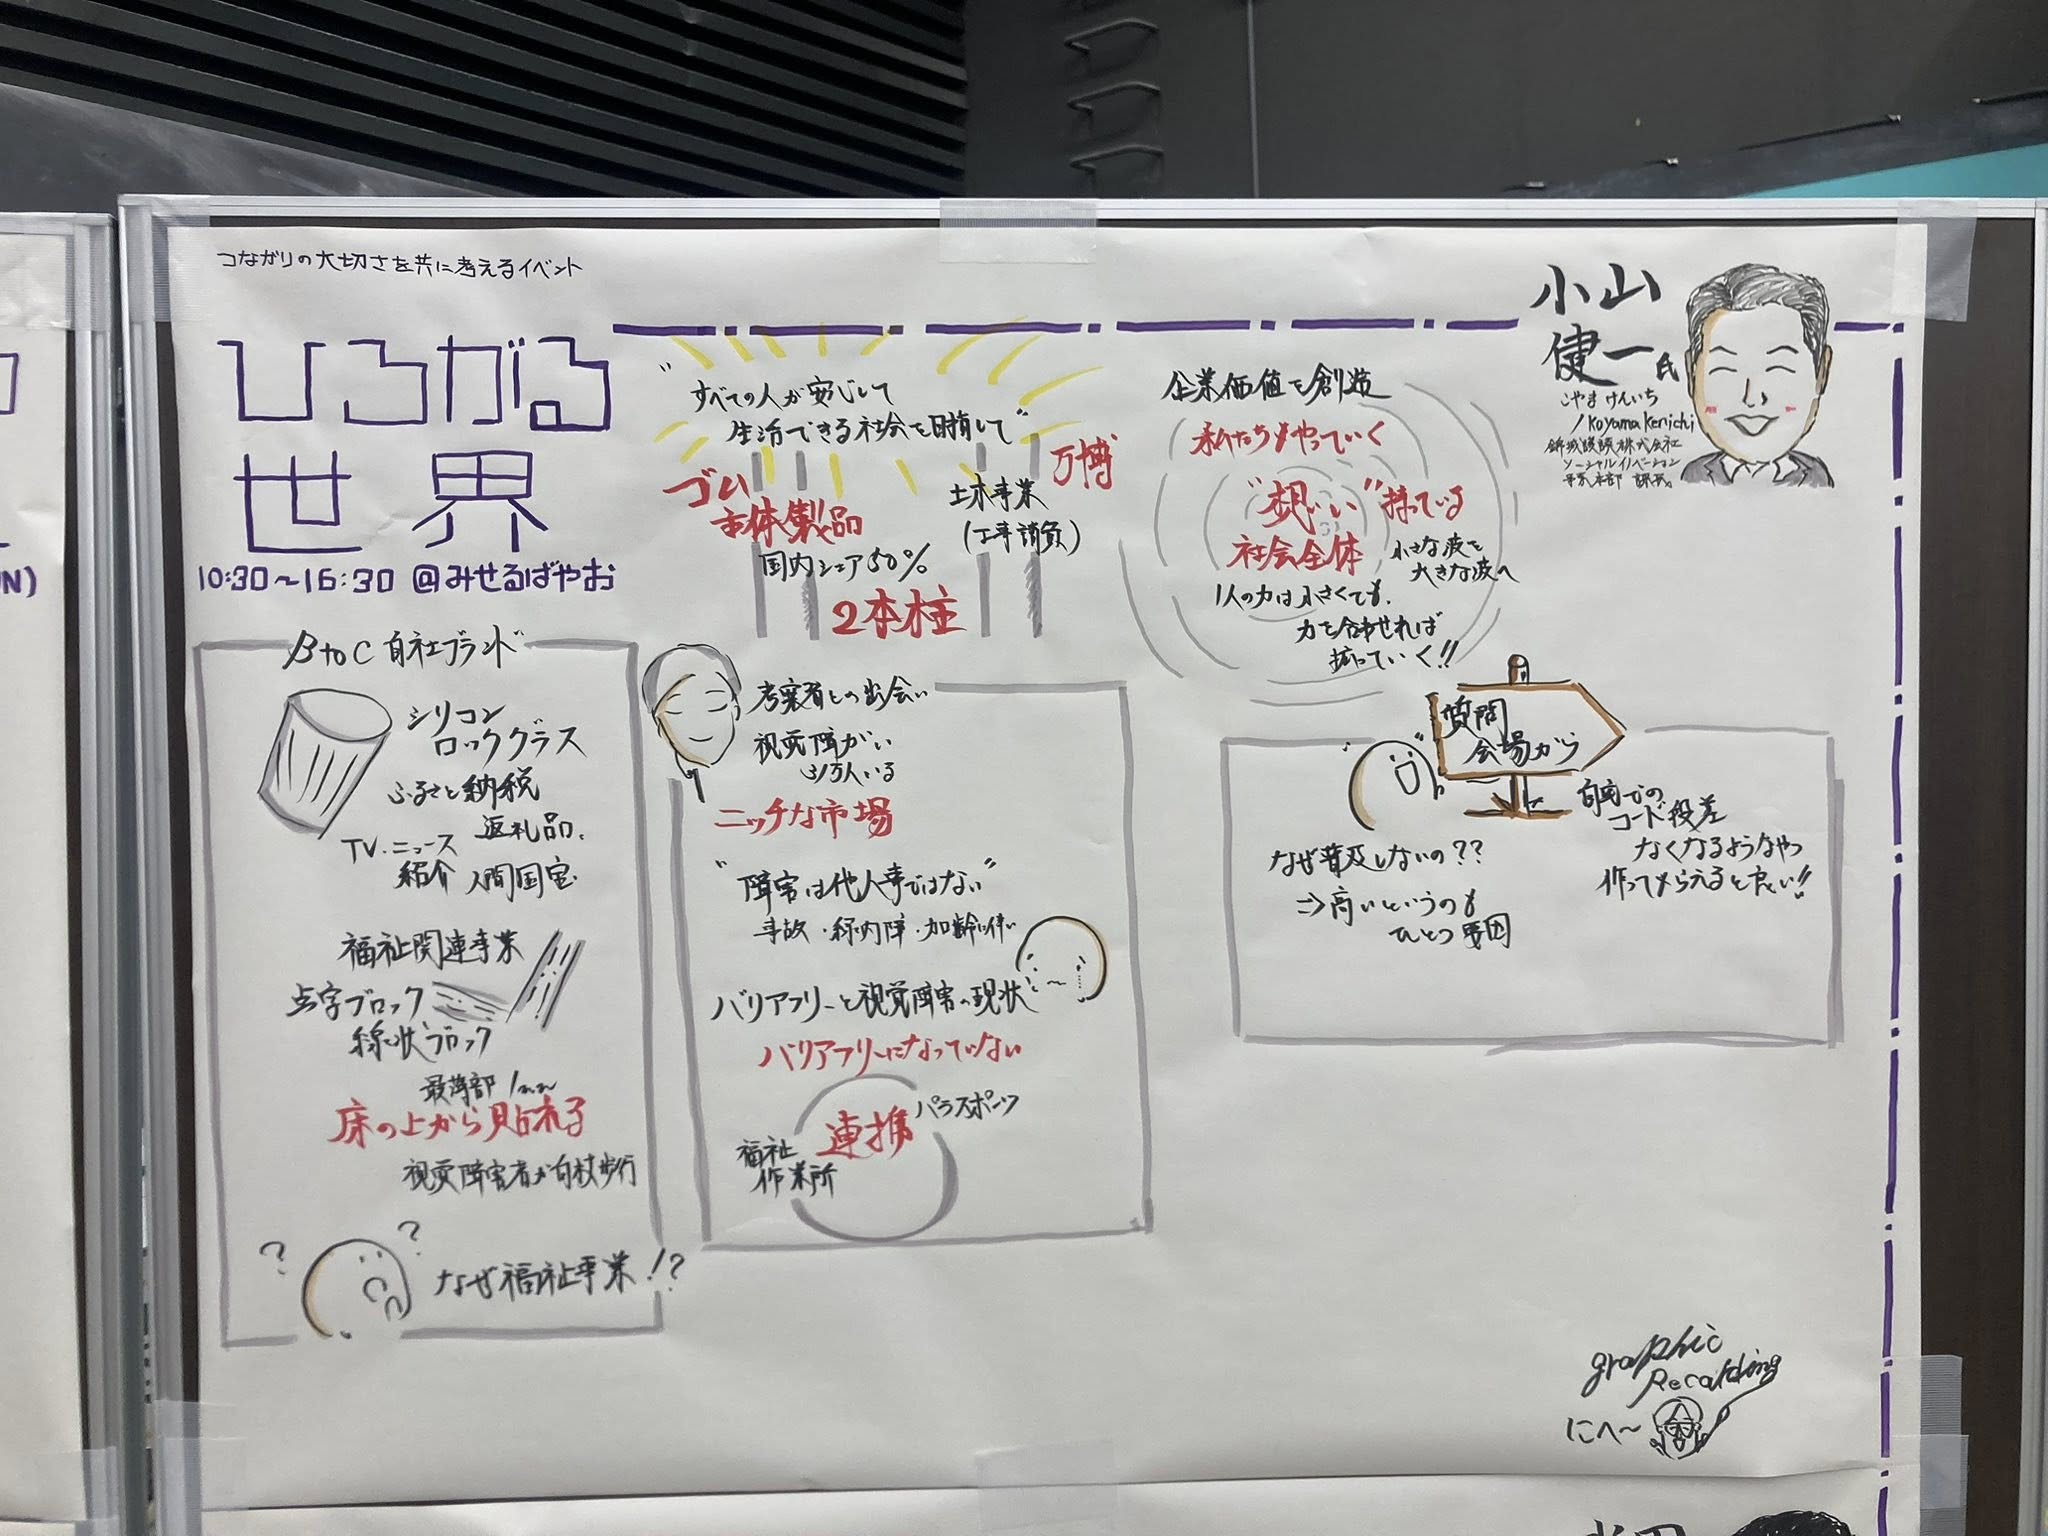 つながりの大切さを共に考えるイベント
ひろがる
世界
10:30~16:30 @みせるばやお
小山
健一氏
こやまけんいち
/Koyama Kenichi
錦城護謨株式会社
ソーシャルイノベーション
事業本部 課長
"すべての人が安心して
生活できる社会を目指して"
ゴム
市体製品
国内シェア50%
土木事業
(工事請負)
万博
2本柱
企業価値を創造
私たちもやっていく
"想い"持っている
社会全体
小さな波を
大きな波へ
1人の力は小さくても、
力を合わせれば
拡っていく!!
B to C 自社ブランド
シリコン
ロックグラス
ふるさと納税
返礼品、
TV・ニュース
紹介 人間国宝
福祉関連事業
点字ブロック
線状ブロック
最薄部 1mm
床の上から貼れる
視覚障害者が白杖歩行
? ?
なぜ福祉事業!?
考案者との出会い
視覚障がい
31万人いる
ニッチな市場
"障害は他人事ではない"
事故・緑内障・加齢に伴い
バリアフリーと視覚障害の現状
バリアフリーになっていない
連携
パラスポーツ
福祉
作業所
質問
会場から
なぜ普及しないの??
⇒高いというのも
ひとつ要因
自宅での
コード段差
なくなるようなやつ
作ってもらえると良い!!
graphic
Recording
にへ~
N)